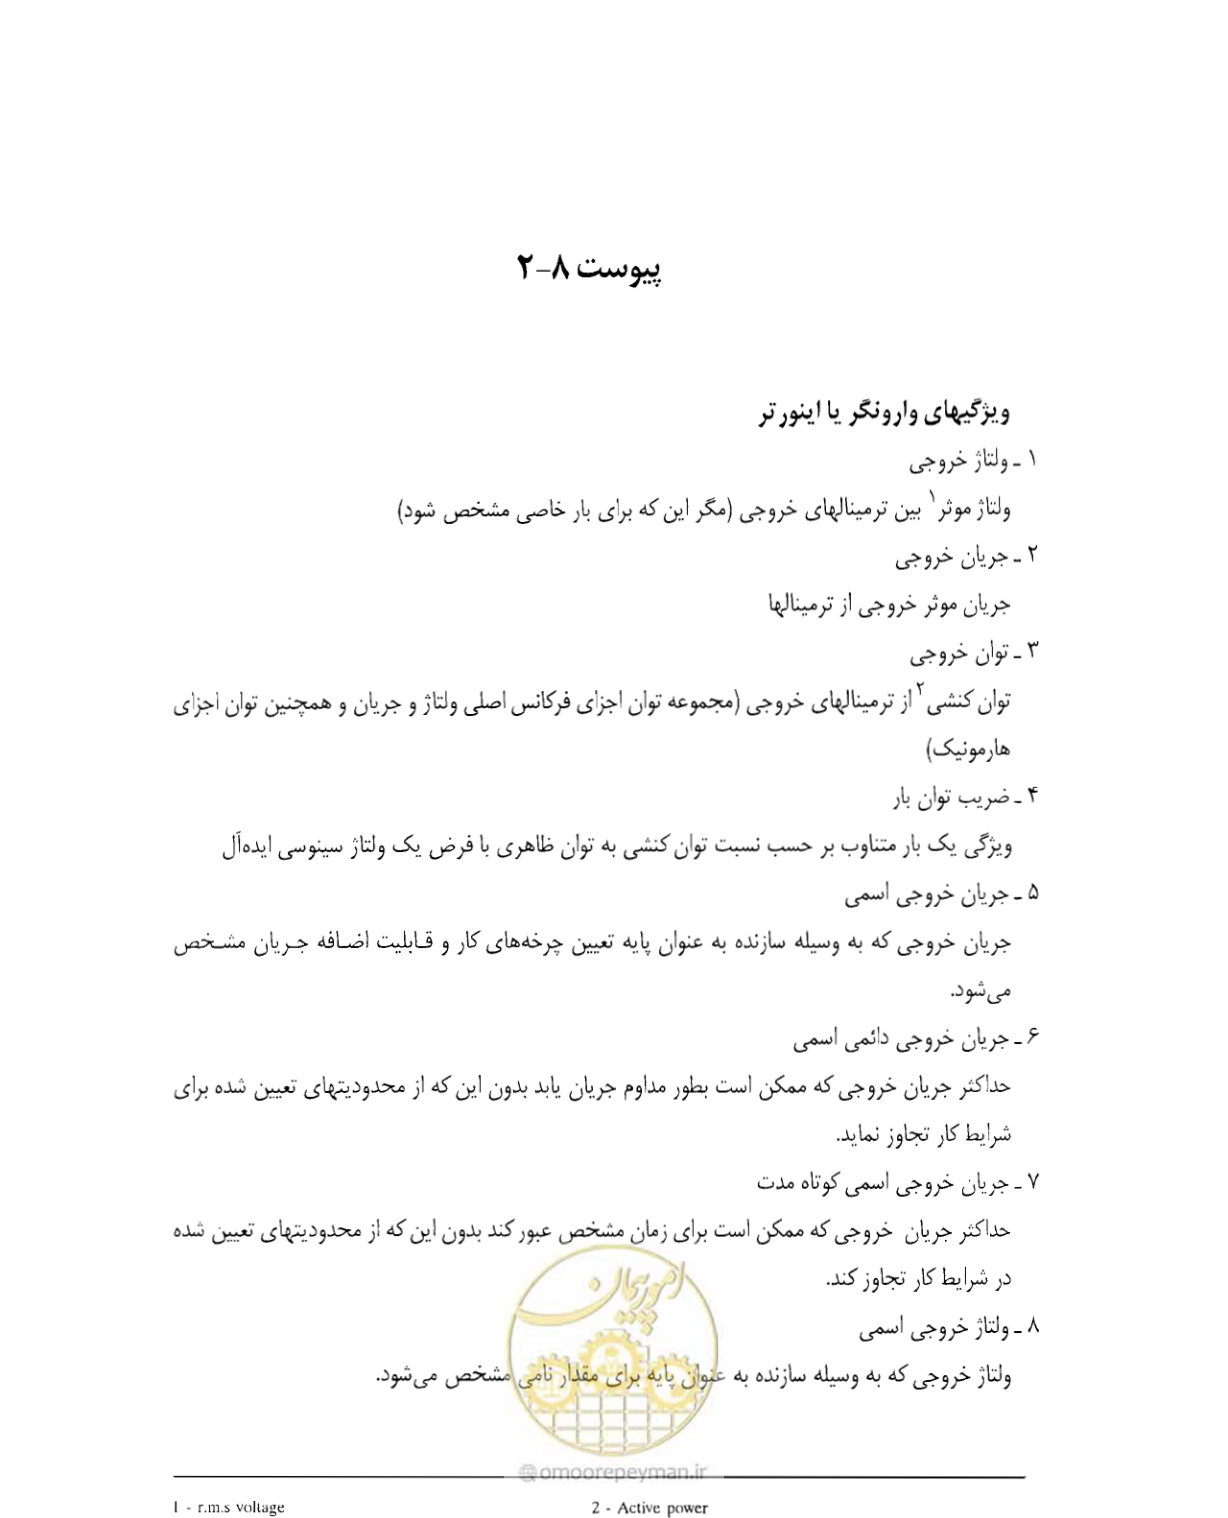 پیوست ۸-۲
ویژگیهای وارونگر یا اینورتر
۱ ـ ولتاژ خروجی
ولتاژ موثر۱ بین ترمینالهای خروجی (مگر این که برای بار خاصی مشخص شود)
۲ ـ جریان خروجی
جریان موثر خروجی از ترمینالها
۳ ـ توان خروجی
توان کنشی۲ از ترمینالهای خروجی (مجموعه توان اجزای فرکانس اصلی ولتاژ و جریان و همچنین توان اجزای
هارمونیک)
۴ ـ ضریب توان بار
ویژگی یک بار متناوب بر حسب نسبت توان کنشی به توان ظاهری با فرض یک ولتاژ سینوسی ایده‌آل
۵ ـ جریان خروجی اسمی
جریان خروجی که به وسیله سازنده به عنوان پایه تعیین چرخه‌های کار و قـابلیت اضـافه جـریان مشـخص
می‌شود.
۶ ـ جریان خروجی دائمی اسمی
حداکثر جریان خروجی که ممکن است بطور مداوم جریان یابد بدون این که از محدودیتهای تعیین شده برای
شرایط کار تجاوز نماید.
۷ ـ جریان خروجی اسمی کوتاه مدت
حداکثر جریان خروجی که ممکن است برای زمان مشخص عبور کند بدون این که از محدودیتهای تعیین شده
در شرایط کار تجاوز کند.
۸ ـ ولتاژ خروجی اسمی
ولتاژ خروجی که به وسیله سازنده به عنوان پایه برای مقدار نامی مشخص می‌شود.
امور پیمان
@omoorepeyman.ir
1 - r.m.s voltage
2 - Active power